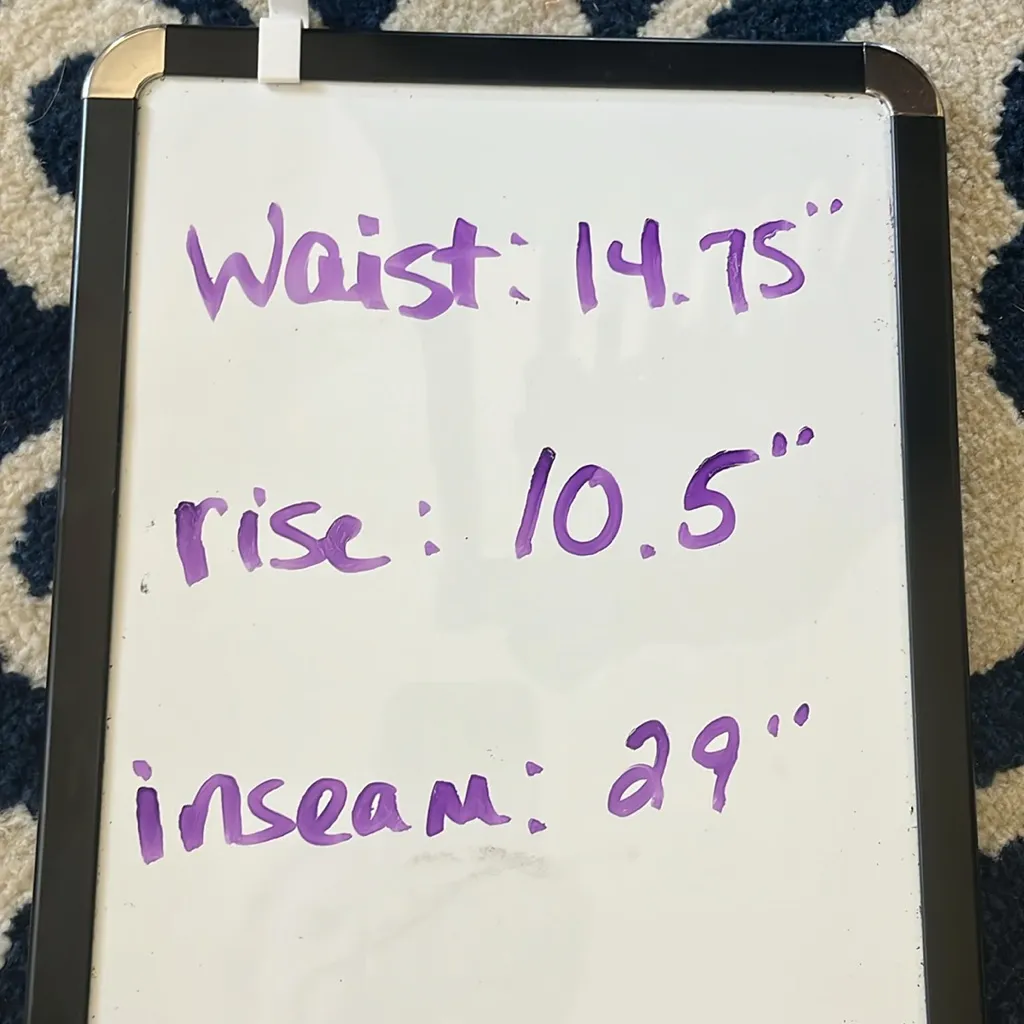 Waist: 14.75"
rise: 10.5"
inseam: 29"